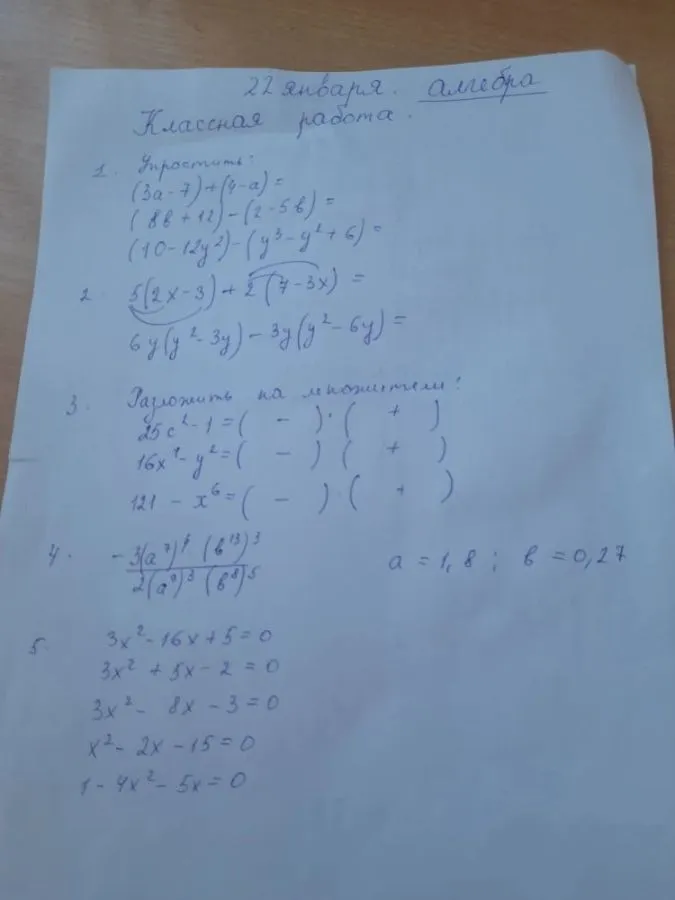 22 января. алгебра
Классная работа.
1. Упростить:
(3a-7)+(4-a)=
(8в+12)-(2-5в)=
(10-12y²)-(y³-y²+6)=
2. 5(2x-3)+2(7-3x)=
6y(y²-3y)-3y(y²-6y)=
3. Разложить на множители:
25c²-1=( - )·( + )
16x⁴-y²=( - ) ( + )
121-x⁶=( - )·( + )
4. -3(a⁷)⁴(в¹³)³ a=1,8; в=0,27
2(a⁹)³(в⁸)⁵
5. 3x²-16x+5=0
3x²+5x-2=0
3x²-8x-3=0
x²-2x-15=0
1-4x²-5x=0